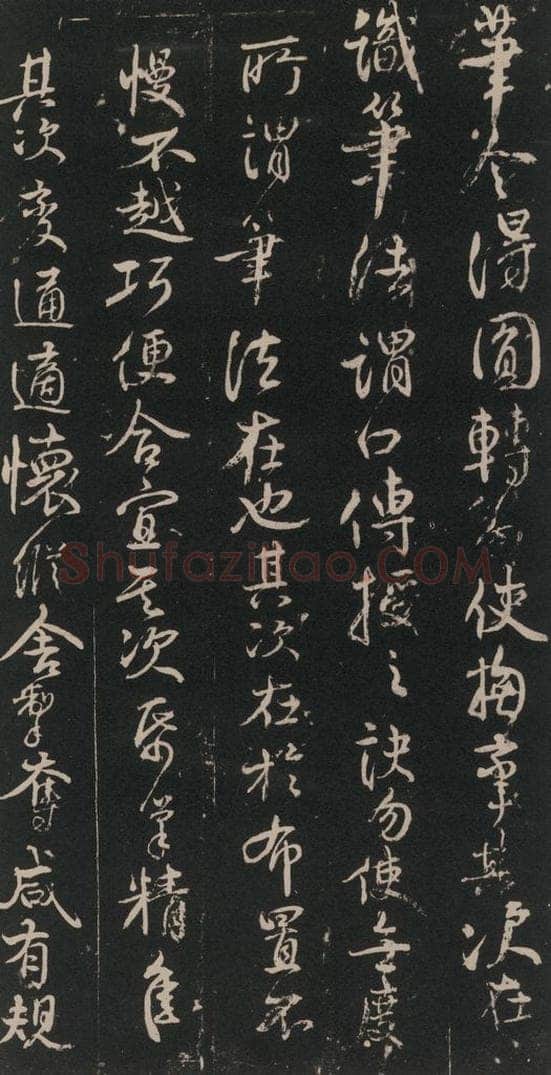 筆令得圓轉勿使拘牽其次在
識筆法謂口傳授之訣勿使無度
所謂筆法在也其次在於布置不
慢不越巧便合宜其次紙筆精佳
其次變通適懷縱舍掣奪咸有規
Shufaziliao.COM